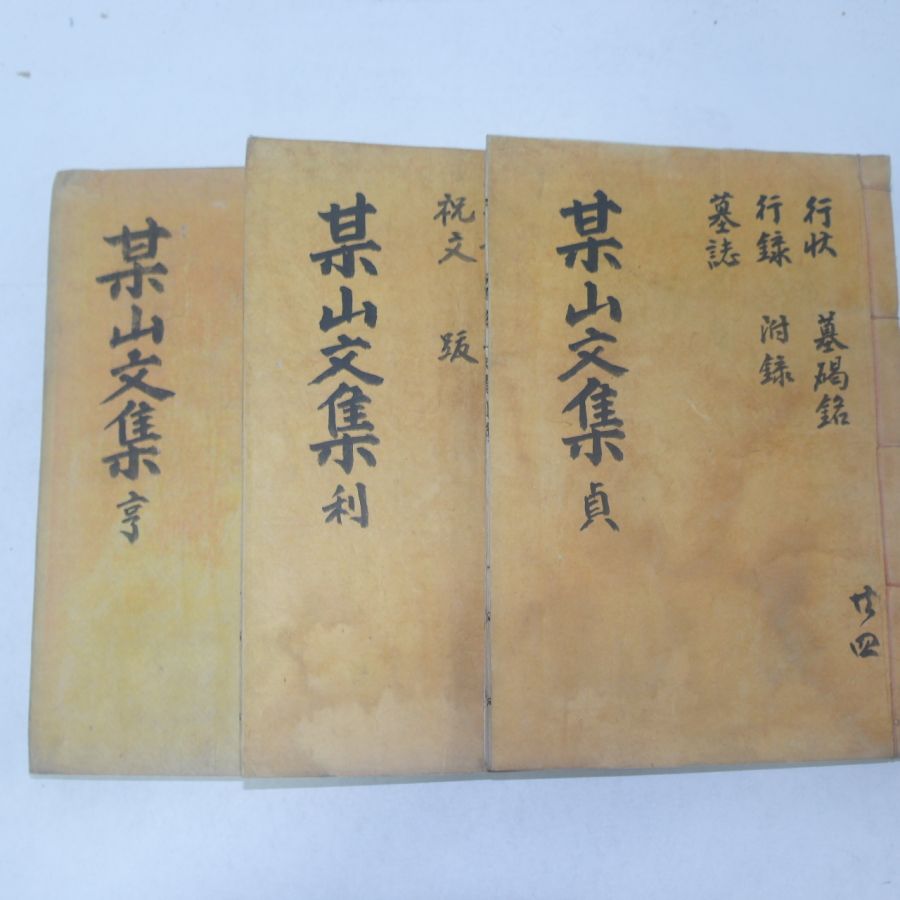 行状 墓碣銘
行錄 附錄
墓誌
某山文集 貞
共四
祝文 跋
某山文集 利
某山文集 亨